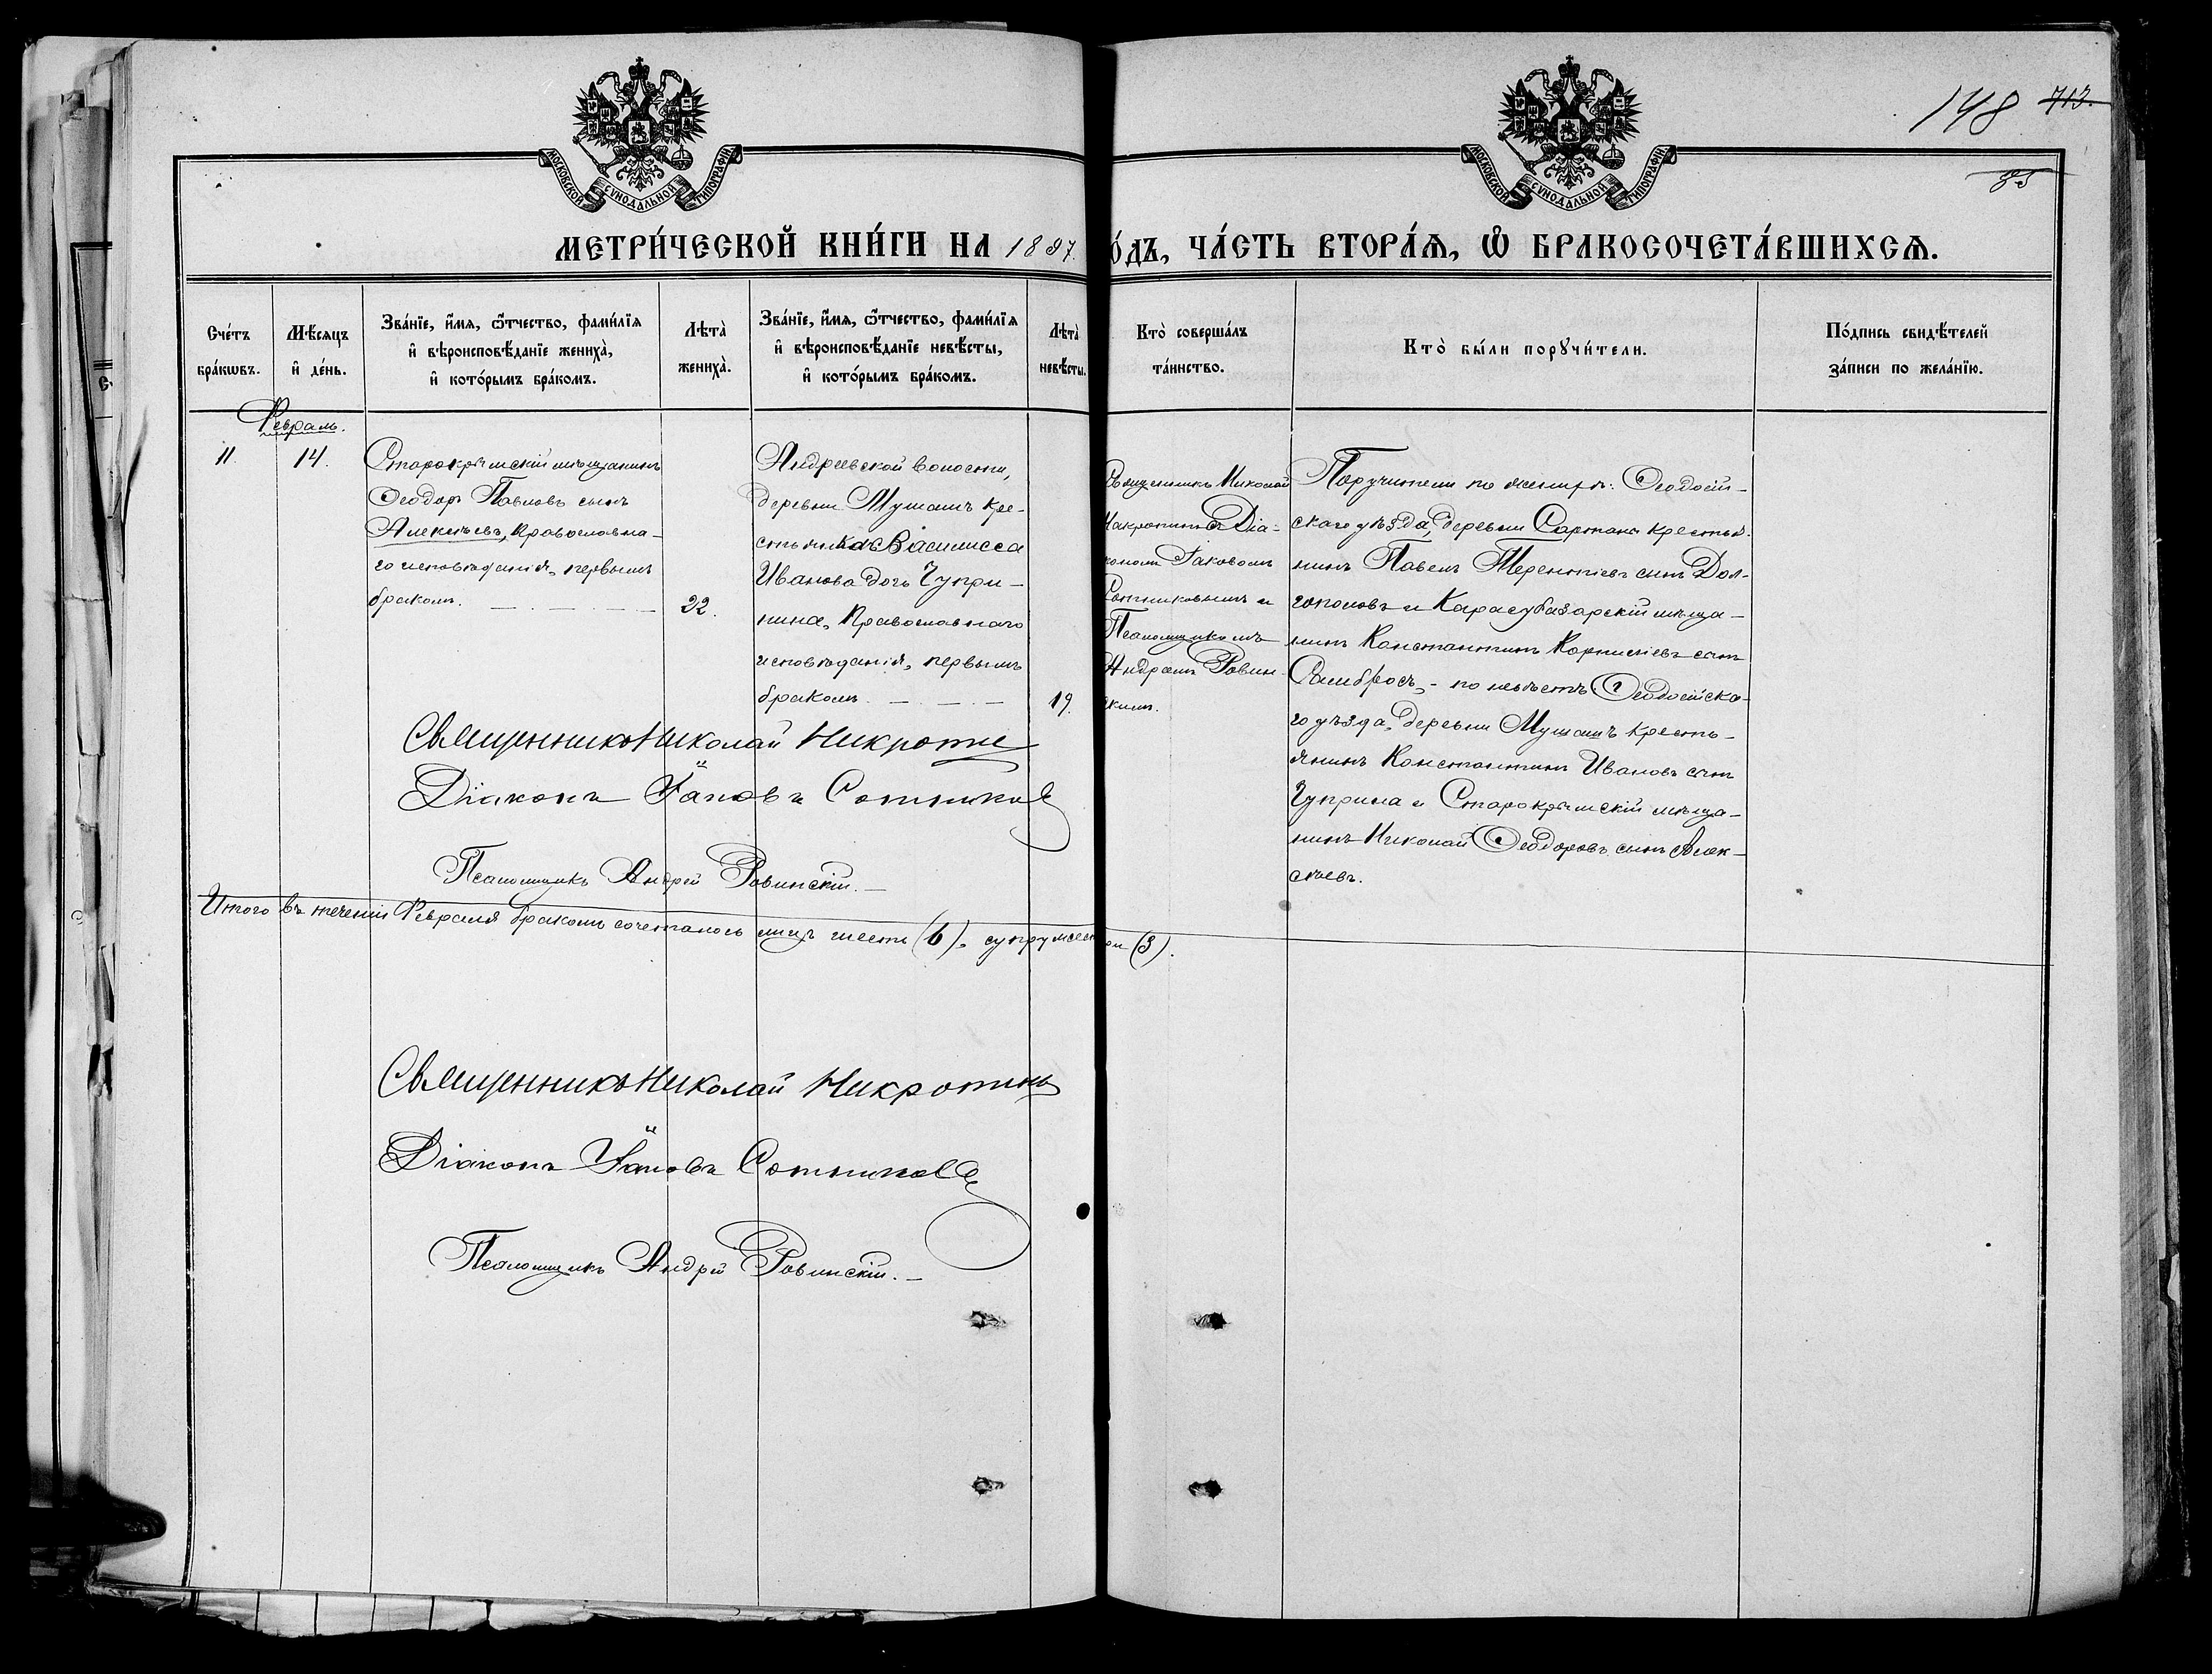 148 713.
85
МОСКОВСКОЙ СУНОДАЛЬНОЙ ТИПОГРАФІИ
МОСКОВСКОЙ СУНОДАЛЬНОЙ ТИПОГРАФІИ
МЕТРИ́ЧЕСКОЙ КНИ́ГИ НА 1897.
О́ДЪ, ЧА́СТЬ ВТОРА́Ѧ, Ѡ҆ БРАКОСОЧЕТА́ВШИХСѦ.
Сче́тъ
бра́кѡвъ.
Мѣ́сѧцъ
и҆ де́нь.
Зва́нїе, и҆́мѧ, ѻ҆́тчество, фами́лїѧ
и҆ вѣроисповѣ́данїе жениха̀,
и҆ кото́рымъ бра́комъ.
Лѣта̀
жениха̀.
Зва́нїе, и҆́мѧ, ѻ҆́тчество, фами́лїѧ
и҆ вѣроисповѣ́данїе невѣ́сты,
и҆ кото́рымъ бра́комъ.
Лѣта̀
невѣ́сты.
Кто̀ соверша́лъ
та́инство.
Кто̀ бы́ли порꙋчи́тели.
По́дпись свидѣ́телей
за́писи по жела́нїю.
Февраль.
11.
14.
Старокрымскій мѣщанинъ
Ѳеодоръ Павловъ сынъ
Алексѣевъ, православна-
го исповѣданія, первымъ
бракомъ.
22.
Андреевской волости,
деревни Мушашъ кре-
стьянка Василисса
Иванова дочь Чупри-
нина, православнаго
исповѣданія, первымъ
бракомъ.
19.
Священникъ Николай
Діа-
кономъ Іаковомъ
Сотниковымъ и
Псаломщикомъ
Андреемъ Ровин-
скимъ.
Поручители по женихѣ: Ѳеодосій-
скаго уѣзда, деревни Сартана крестья-
нинъ Павелъ Терентіевъ сынъ Дол-
гополовъ и Карасубазарскій мѣща-
нинъ Константинъ Корниліевъ сынъ
- по невѣстѣ Ѳеодосійска-
го уѣзда, деревни Мушашъ кресть-
янинъ Константинъ Ивановъ сынъ
Чуприна и Старокрымскій мѣща-
нинъ Николай Ѳеодоровъ сынъ Алек-
сѣевъ.
Священникъ Николай
Діаконъ Іаковъ Сотниковъ
Псаломщикъ Андрей Ровинскій.
Итого въ теченіи Февраля бракомъ сочеталось лицъ шесть (6),
(3).
Священникъ Николай
Діаконъ Іаковъ Сотниковъ
Псаломщикъ Андрей Ровинскій.